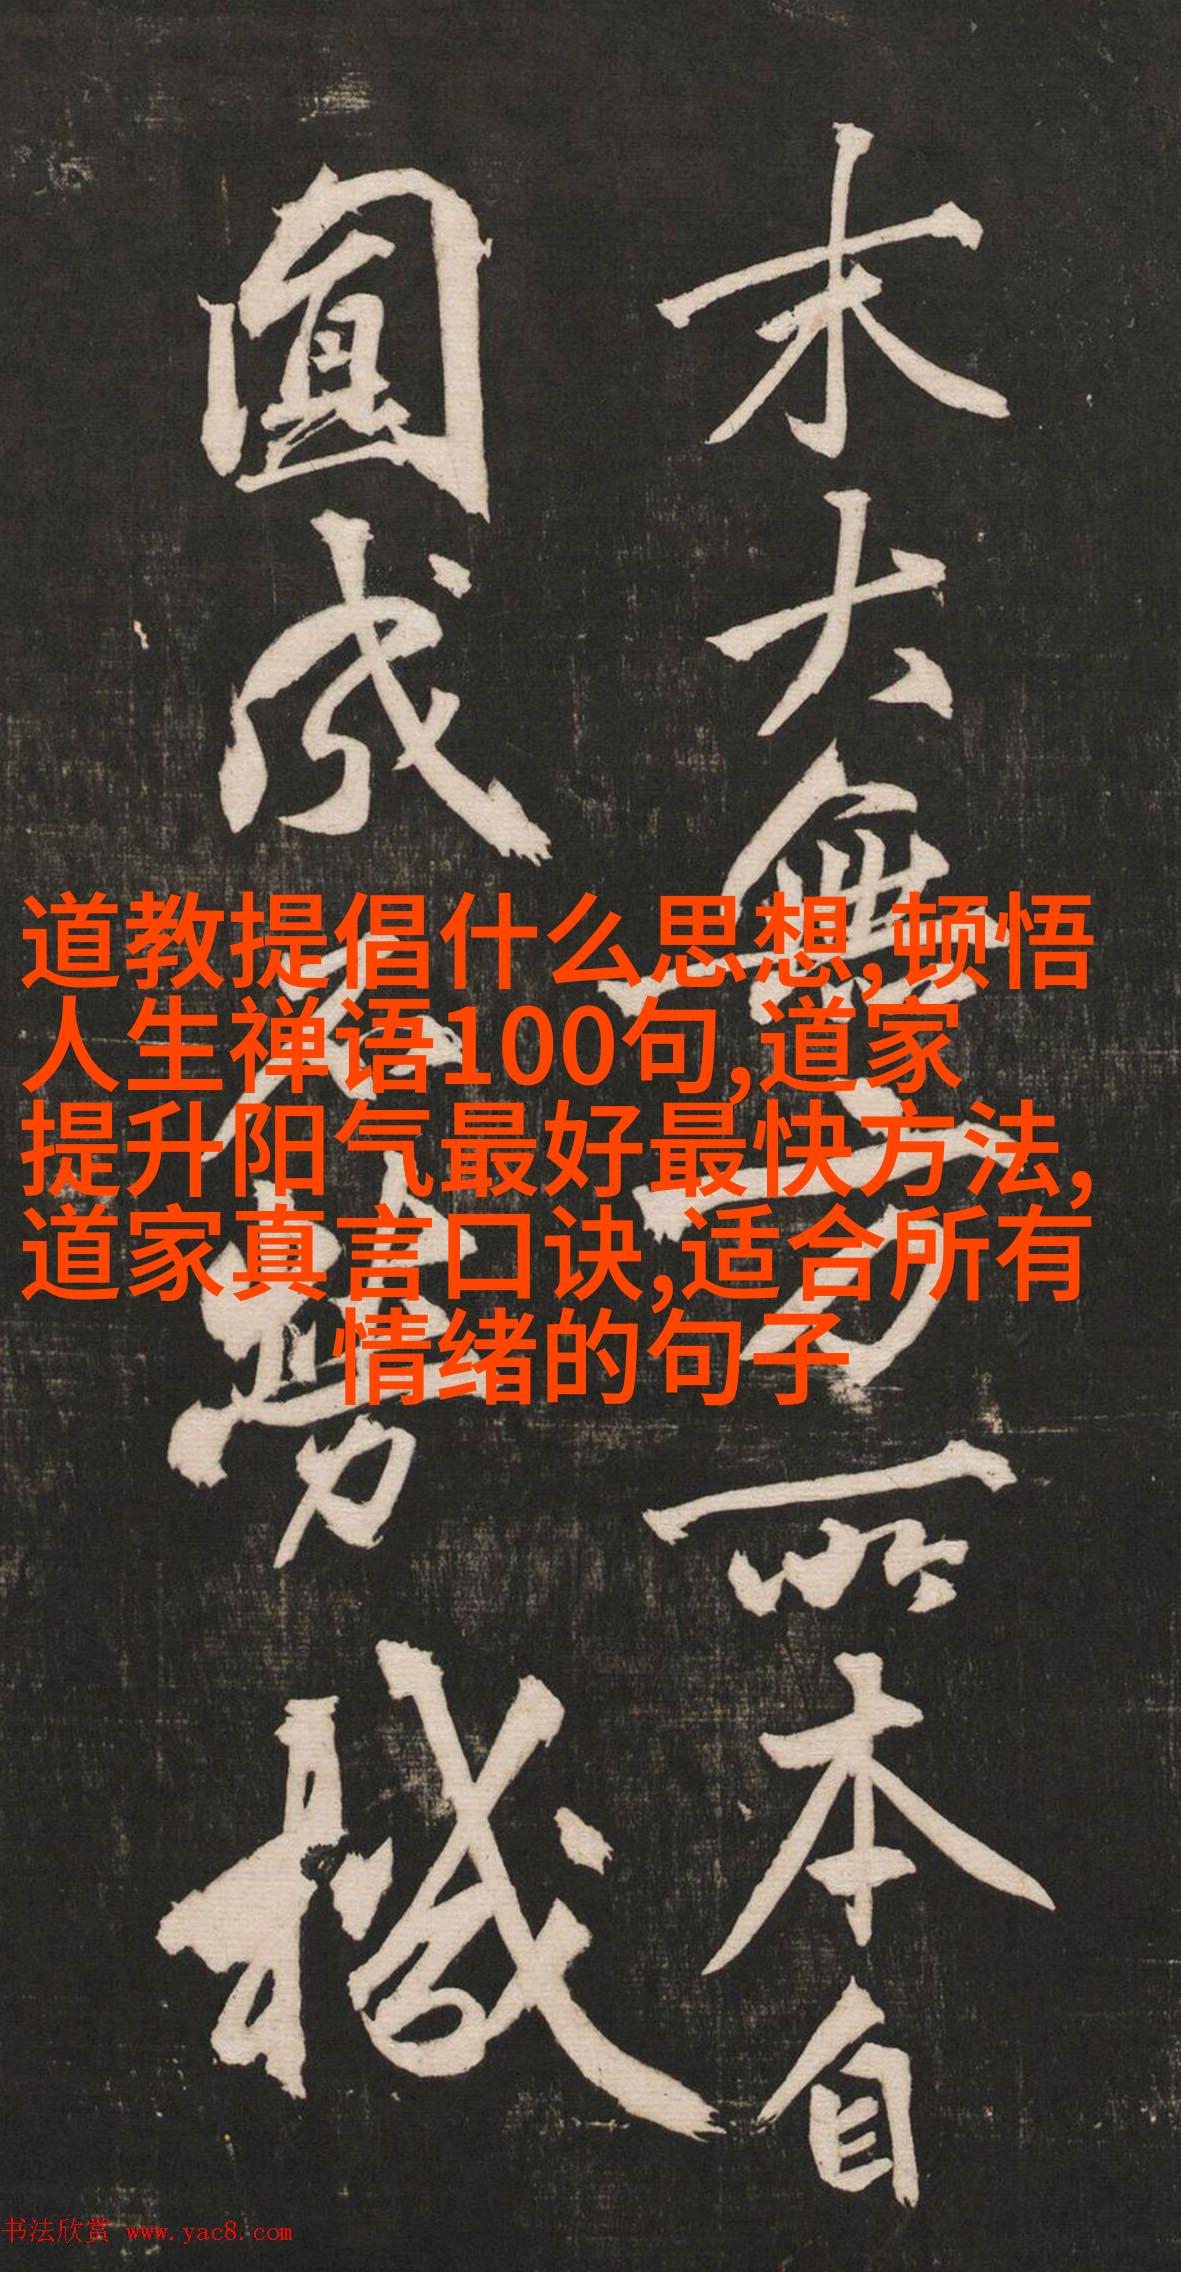 無方所本自
圓成不勞機
道教提倡什么思想,顿悟
人生禅语100句,道家
提升阳气最好最快方法,
道家真言口诀,适合所有
情绪的句子
书法欣赏 www.yac8.com